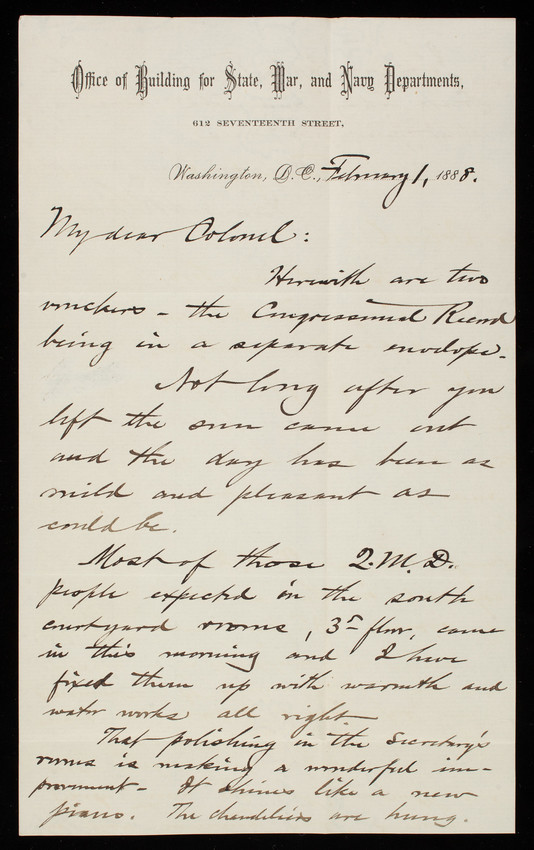 Office of Building for State, War, and Navy Departments,
612 SEVENTEENTH STREET,
Washington, D.C., February 1, 1888.
My dear Colonel:
Herewith are two
vouchers - the Congressional Record
being in a separate envelope.
Not long after you
left the sun came out
and the day has been as
mild and pleasant as
could be.
Most of those Q.M.D.
people expected in the south
courtyard rooms, 3d floor, came
in this morning and I have
fixed them up with warmth and
water works all right
That polishing in the Secretary's
rooms is making a wonderful im-
provement - It shines like a new
piano. The chandeliers are hung.